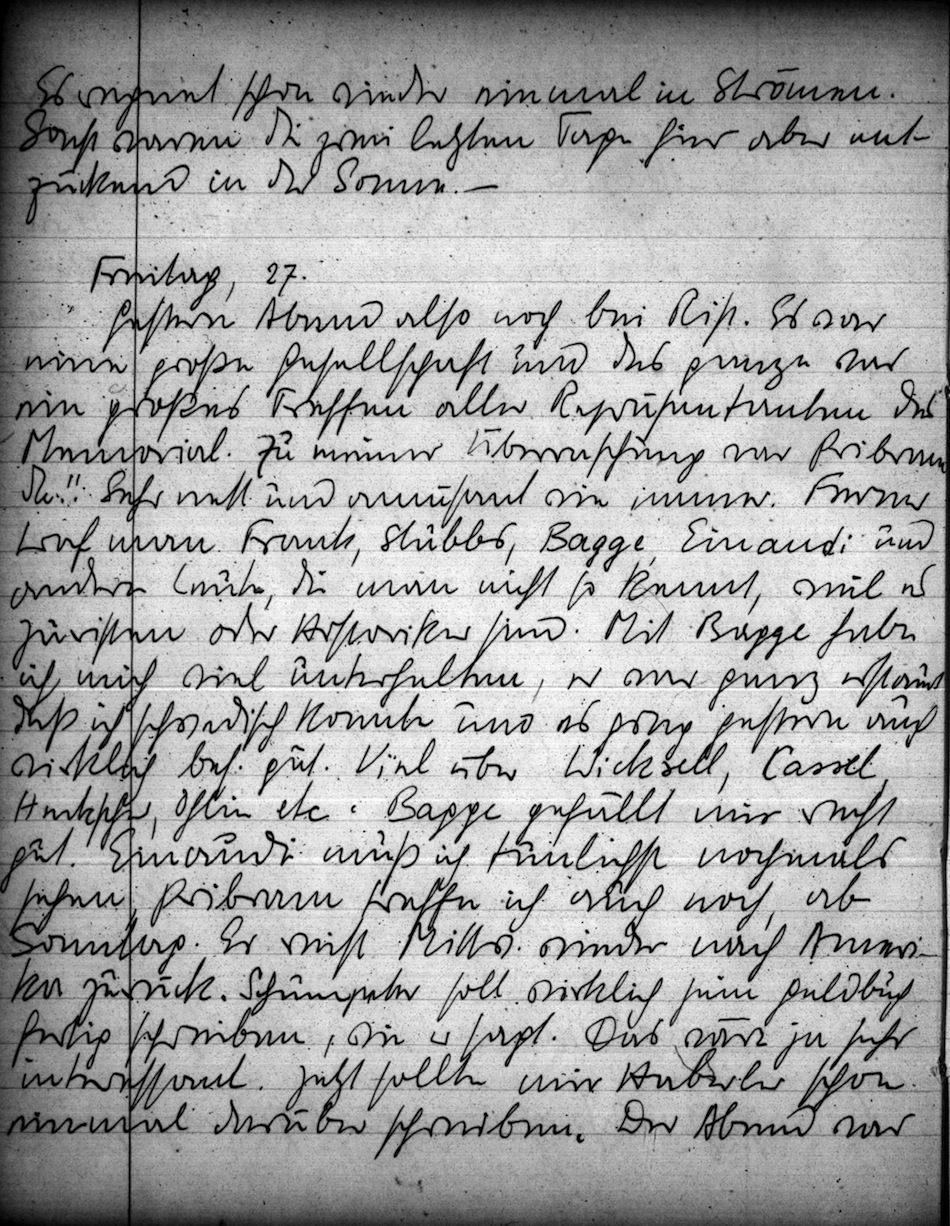 Es regnet schon wieder einmal in Strömen.
Sonst waren die zwei letzten Tage hier aber ent-
zückend in der Sonne. —
Freitag, 27.
Gestern Abend also noch bei Rist. Es war
eine große Gesellschaft und das ganze war
ein großes Treffen aller Repräsentanten des
Memorial. Zu meiner Überraschung war Pribram
da!! Sehr nett und amüsant wie immer. Ferner
traf man Frank, Stubbs, Bagge, Einaudi und
andere Leute, die man nicht so kennt, weil es
Juristen oder Historiker sind. Mit Bagge habe
ich mich viel unterhalten, er war ganz erstaunt
daß ich schwedisch konnte und es ging gestern auch
wirklich bes. gut. Viel über Wicksell, Cassel,
Heckscher, Ohlin etc. Bagge gefällt mir recht
gut. Einaudi muß ich tunlichst nochmals
sehen, Pribram treffe ich auch noch, ab
Sonntag. Er reist Mittw. wieder nach Ameri-
ka zurück. Schumpeter soll wirklich sein Geldbuch
fertig schreiben, wie er sagt. Das wäre ja sehr
interessant. Jetzt sollte mir Haberler schon
einmal darüber schreiben. Der Abend war